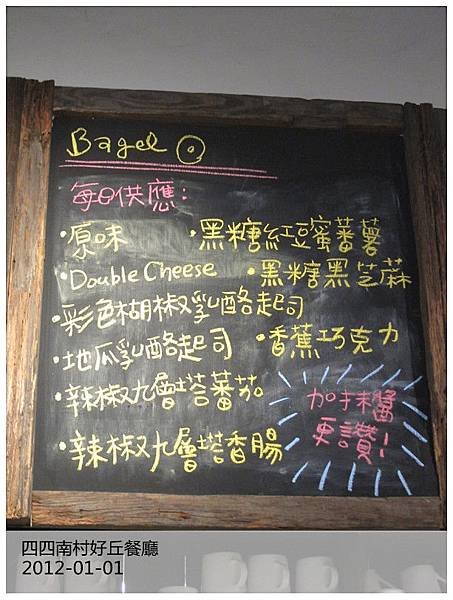 Bagel
每日供應:
·原味 ·黑糖紅豆蜜蕃薯
·Double Cheese ·黑糖黑芝蔴
·彩色椒椒乳酪起司
·地瓜乳酪起司 ·香蕉巧克力
·辣椒九層塔蕃茄
·辣椒九層塔香腸
加抹醬
更讚!
四四南村好丘餐廳
2012-01-01